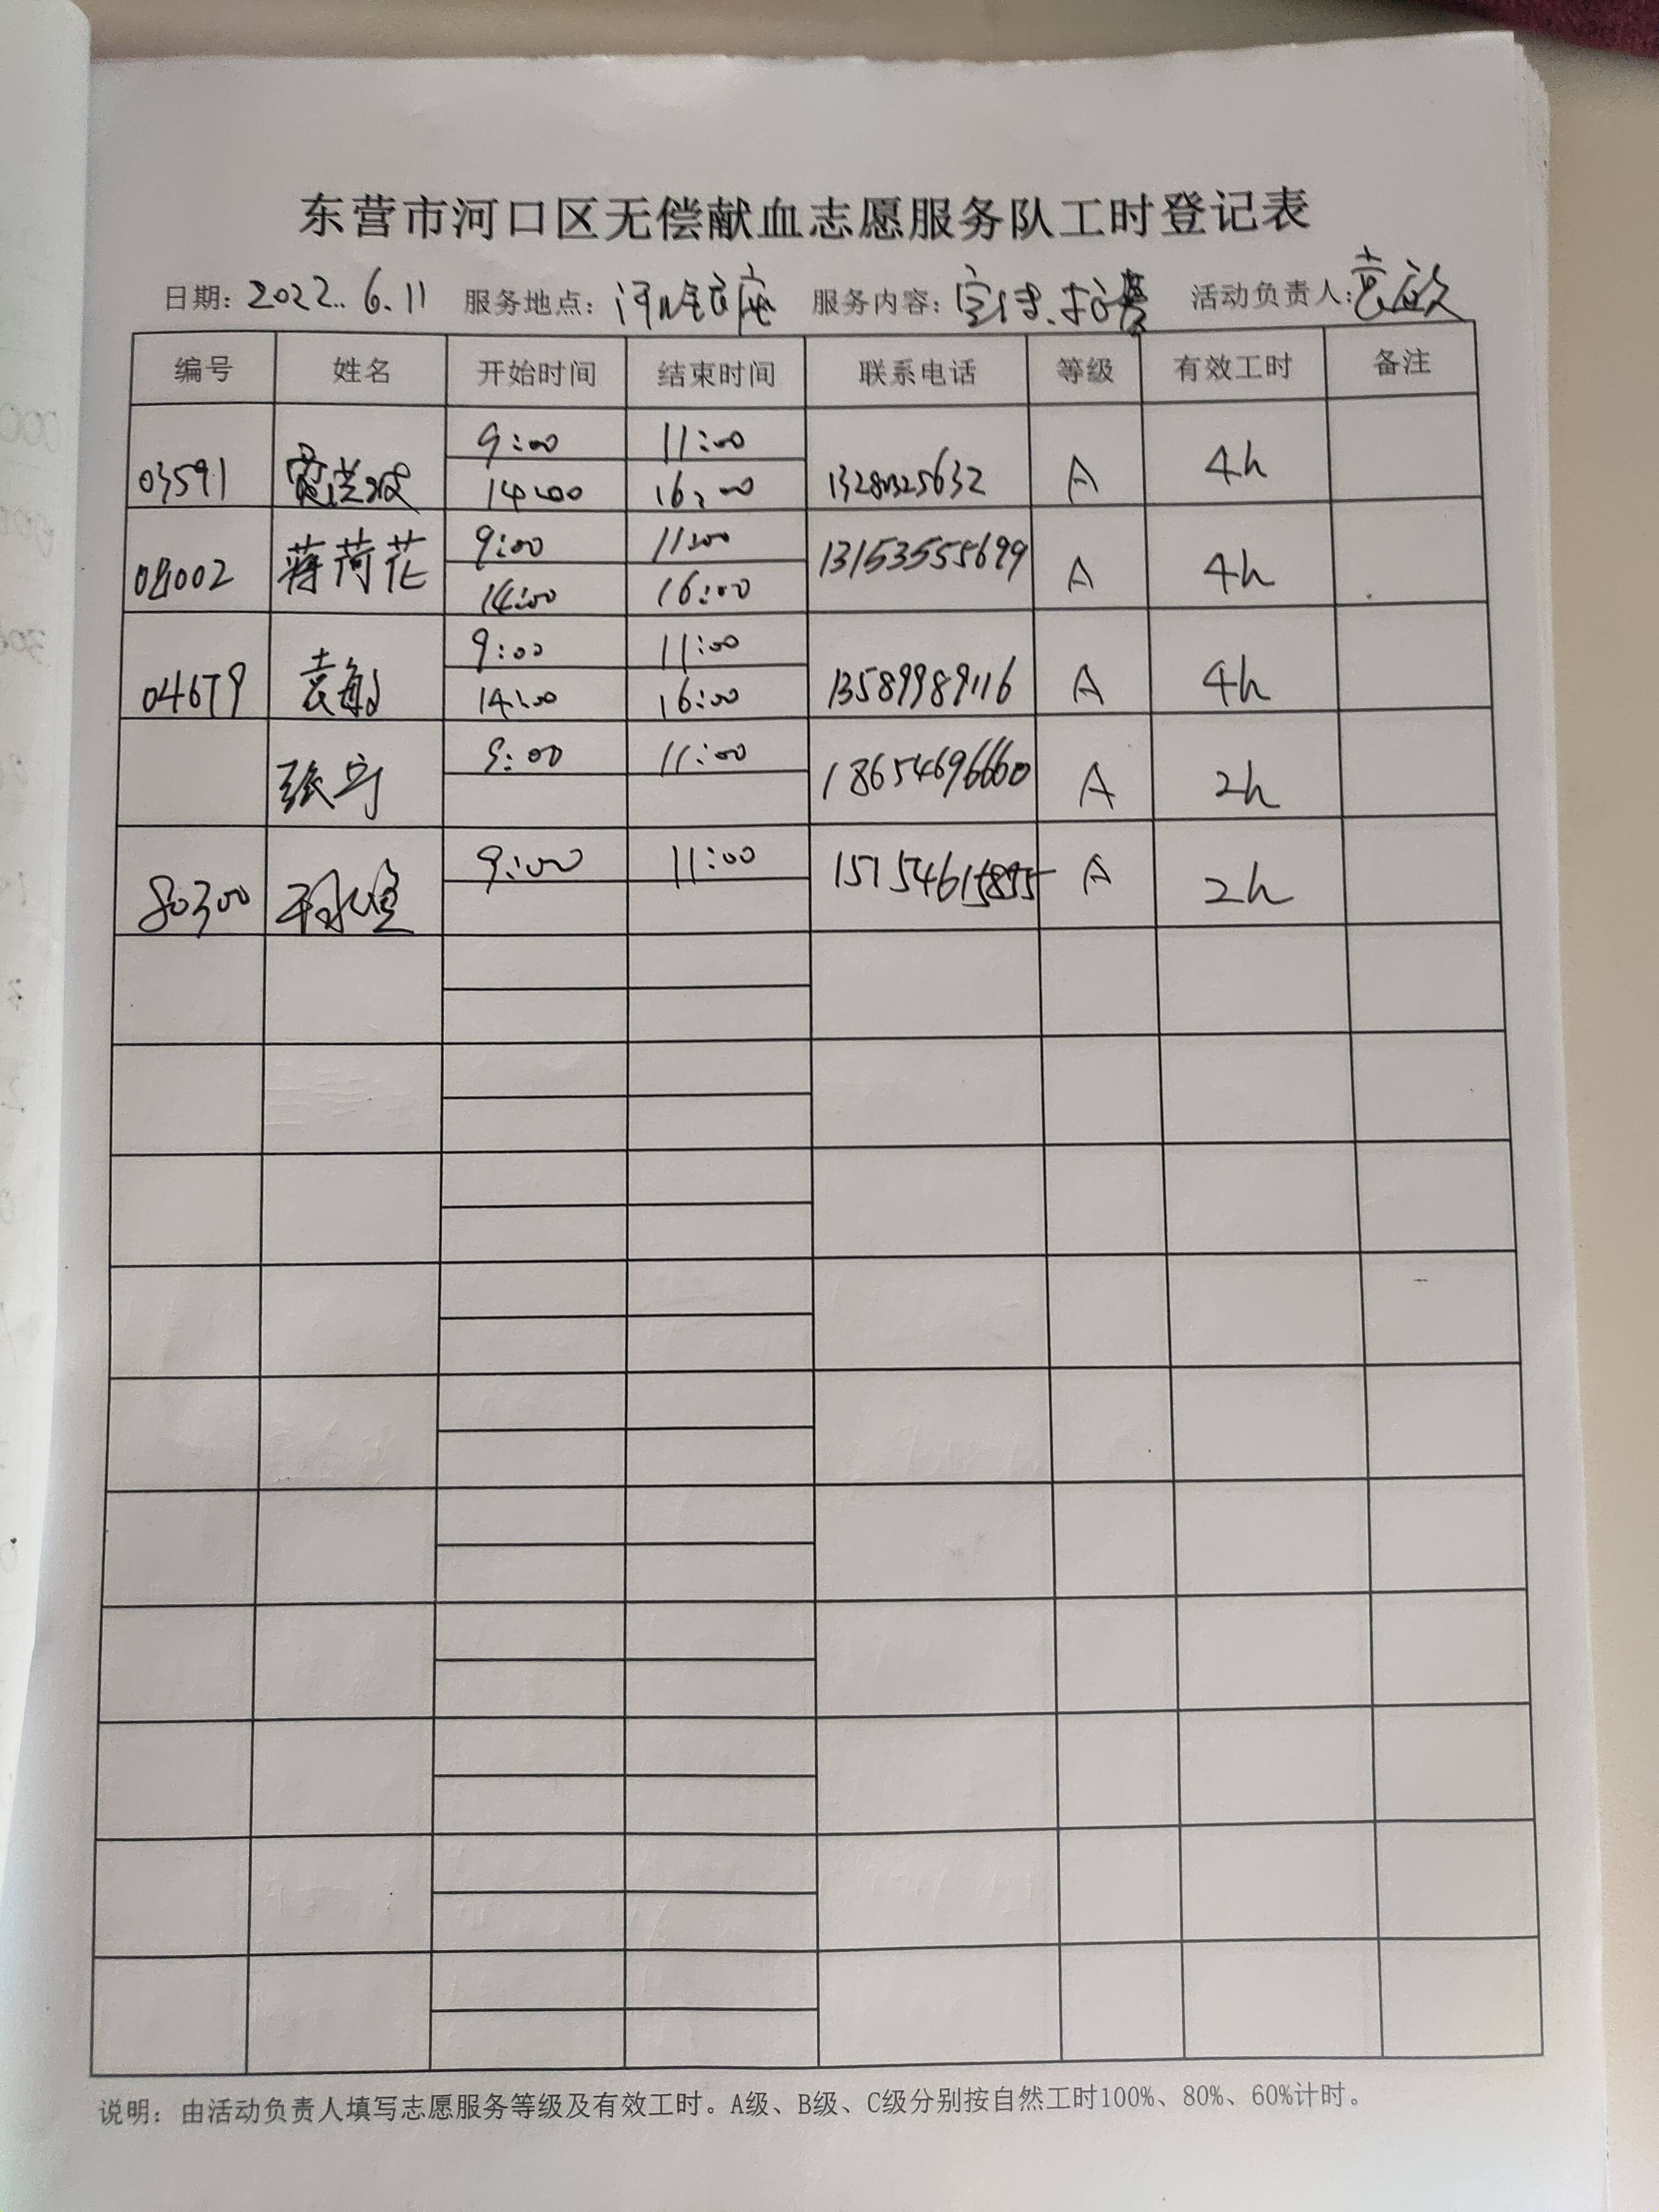 东营市河口区无偿献血志愿服务队工时登记表
日期: 2022.6.11 服务地点: 河口 服务内容: 宣传、招募 活动负责人: 袁敏
编号 姓名 开始时间 结束时间 联系电话 等级 有效工时 备注
03591 9:00 11:00 A 4h
14:00 16:00
蒋荷花 9:00 11:00 13153555699 A 4h
14:00 16:00
04679 袁敏 9:00 11:00 13589989116 A 4h
14:00 16:00
张宁 9:00 11:00 18654696660 A 2h
80300 9:00 11:00 A 2h
说明: 由活动负责人填写志愿服务等级及有效工时。A级、B级、C级分别按自然工时100%、80%、60%计时。